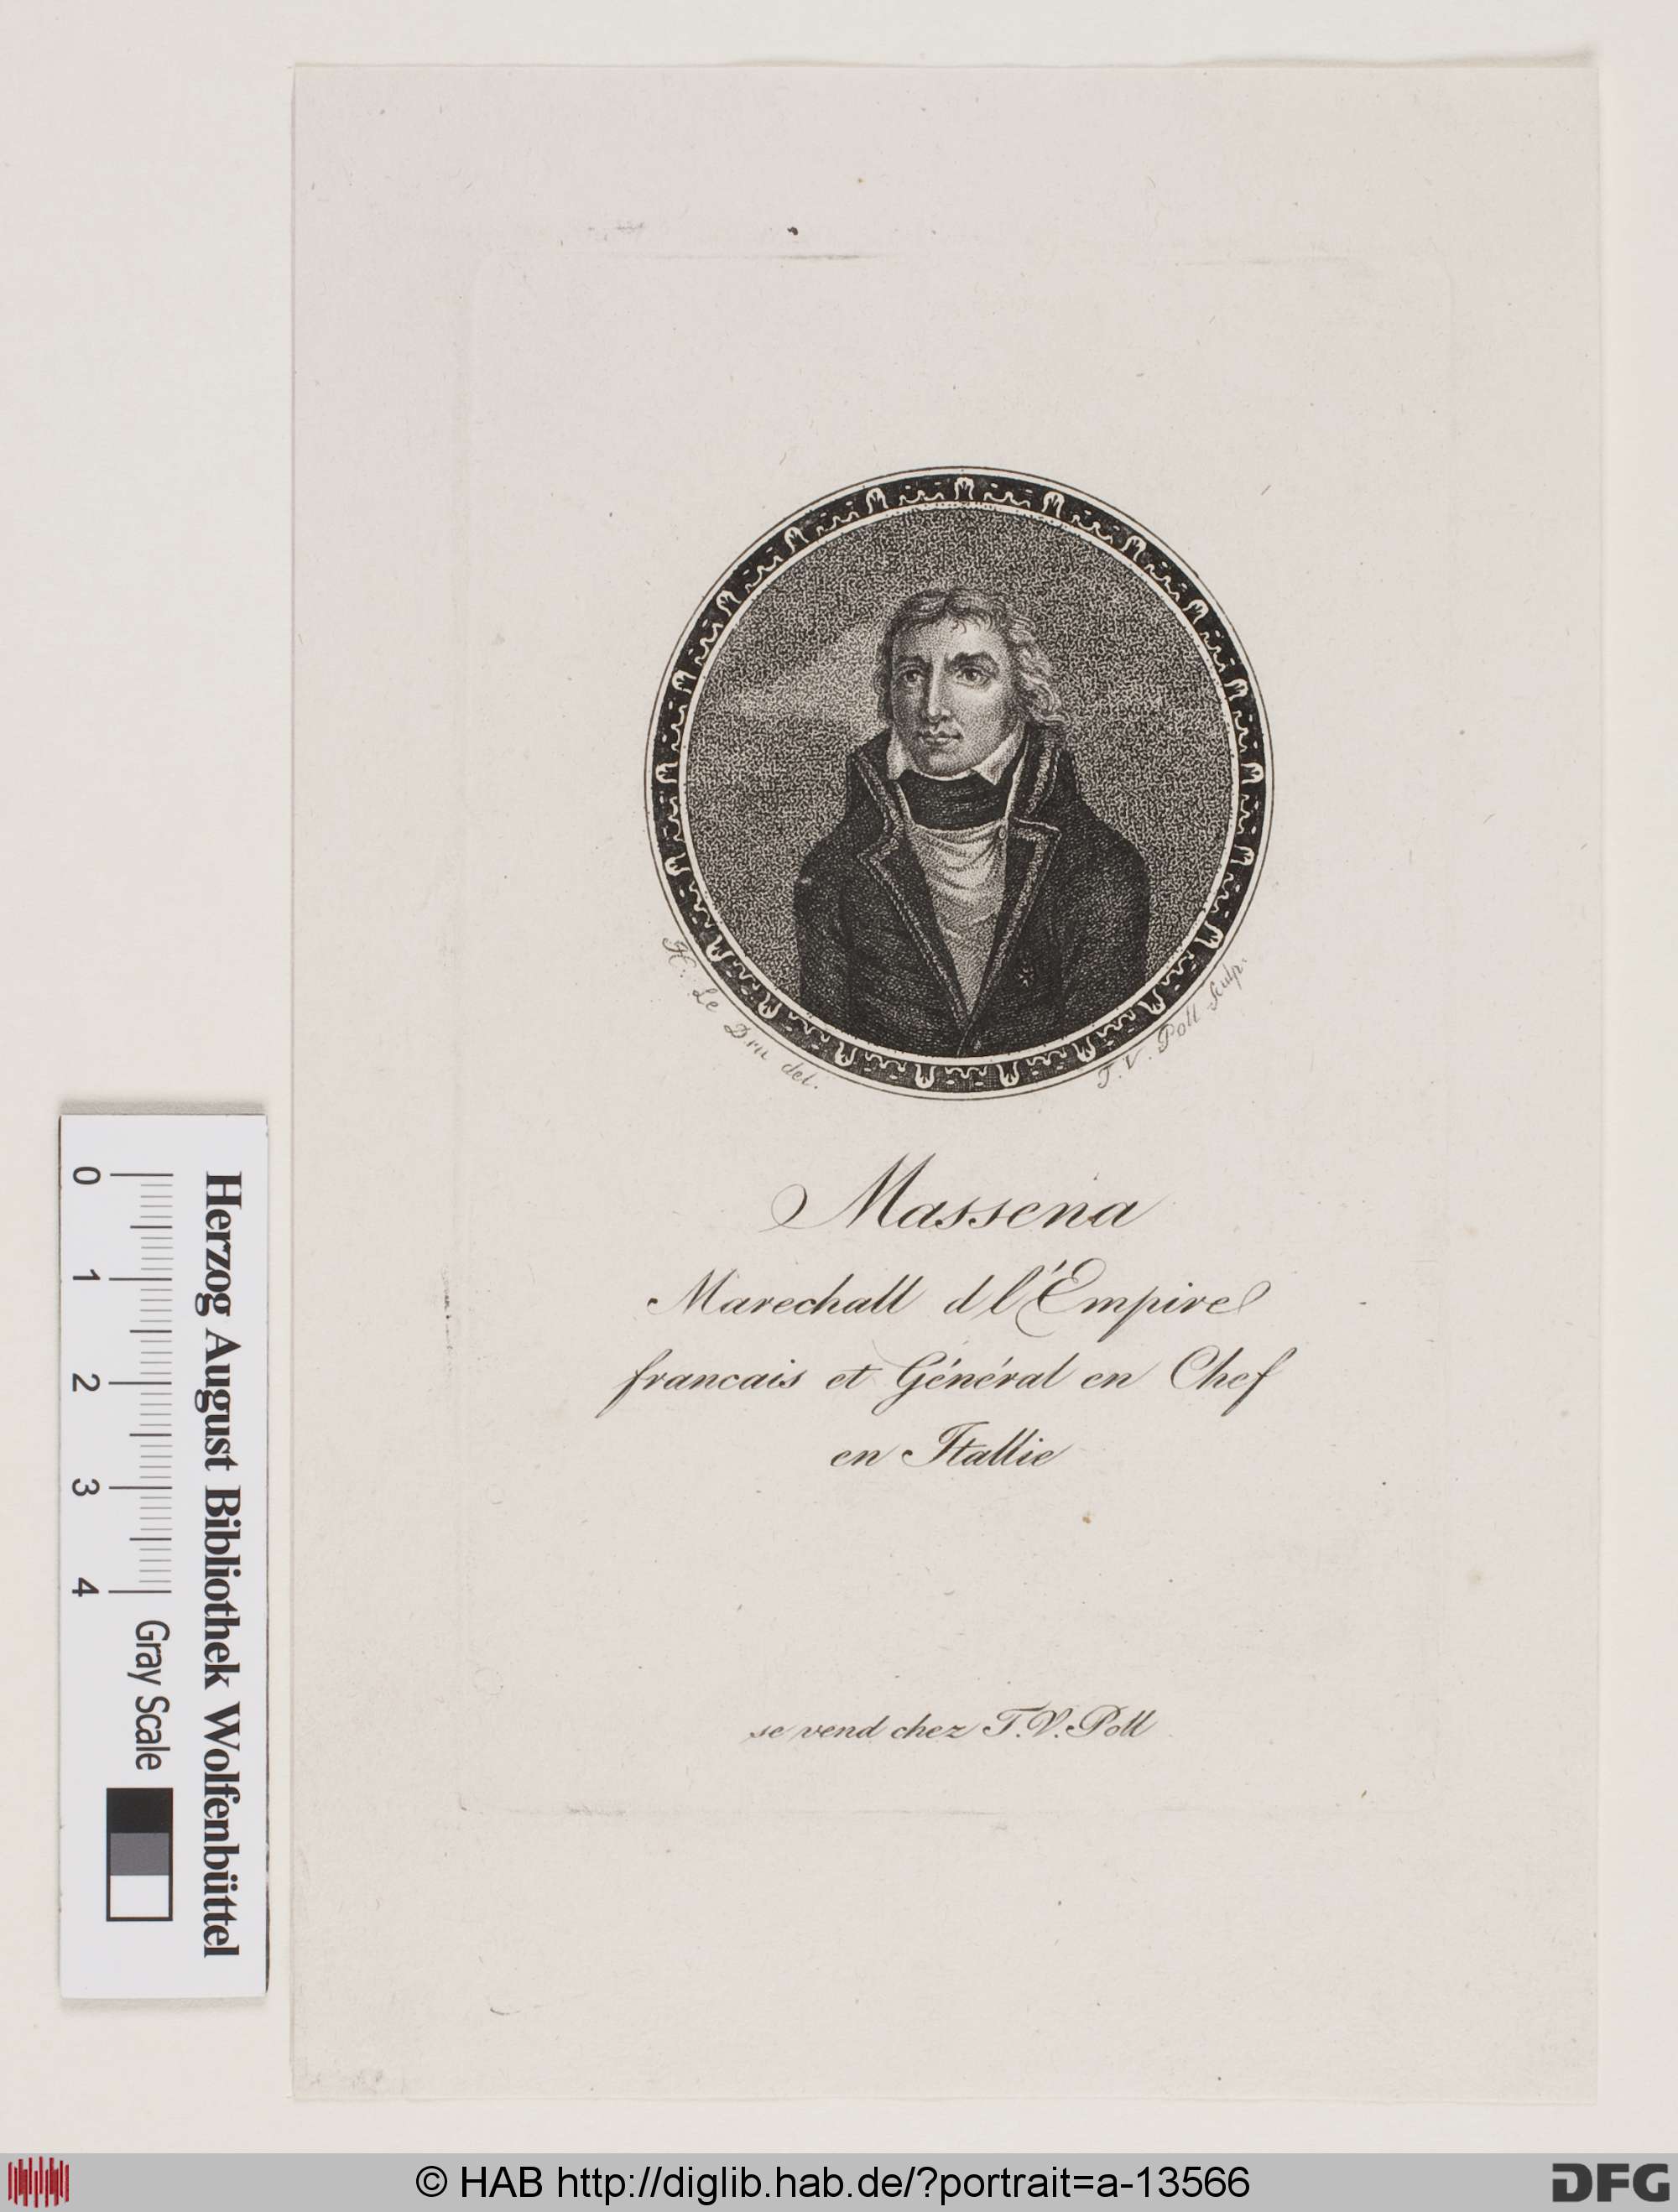 H. Le Dru del.
T. V. Poll Sculp.
Massena
Marechall d l'Empire
francais et Général en Chef
en Itallie
se vend chez T. V. Poll
Herzog August Bibliothek Wolfenbüttel
0 1 2 3 4 Gray Scale
© HAB http://diglib.hab.de/?portrait=a-13566
DFG